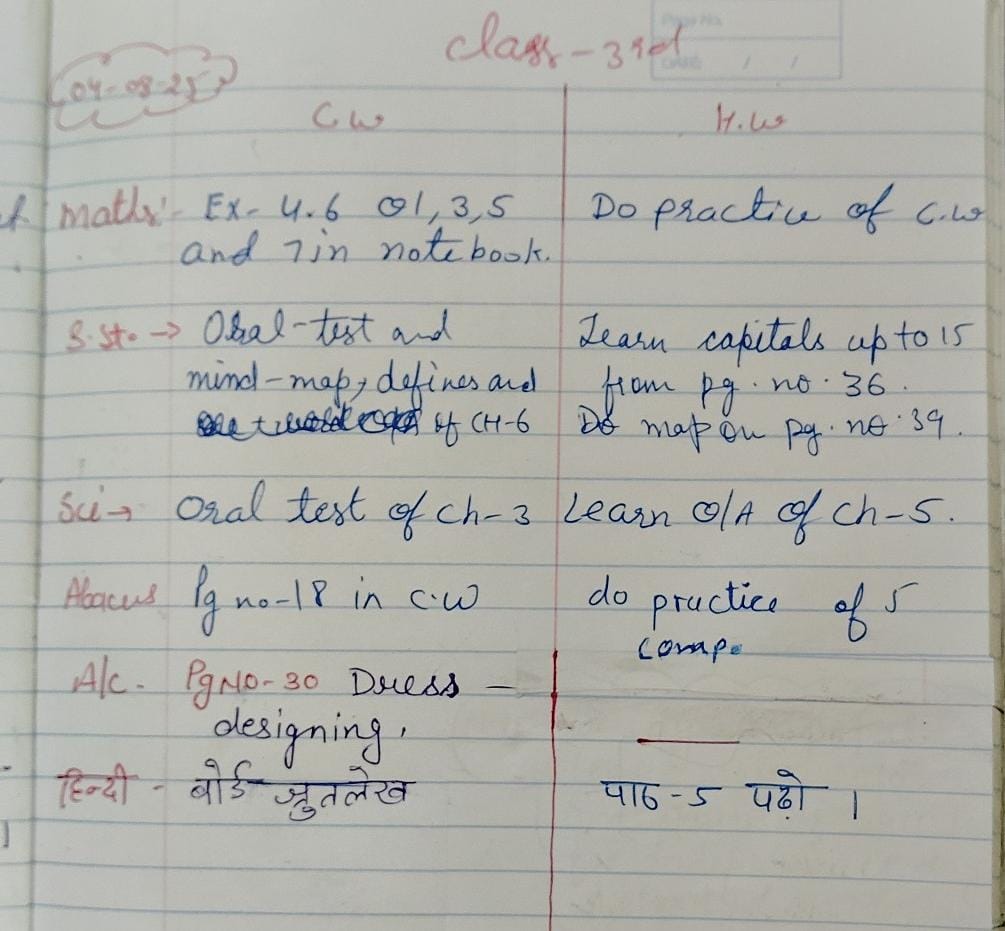 Page No.
DATE / /
class-3rd
04-08-25
C.W H.W
Maths:- Ex- 4.6 Q1, 3, 5 Do practice of C.W
and 7 in notebook.
S.St. → Oral-test and Learn capitals up to 15
mind-map, defines and from pg. no. 36.
of CH-6 Do map on pg. no. 39.
Sci → Oral test of Ch-3 Learn Q/A of Ch-5.
Abacus Pg no-18 in C.W do practice of 5
comp.
A/c - Pg No-30 Dress -
designing.
हिन्दी - बोर्ड श्रुतलेख पाठ-5 पढ़ो ।